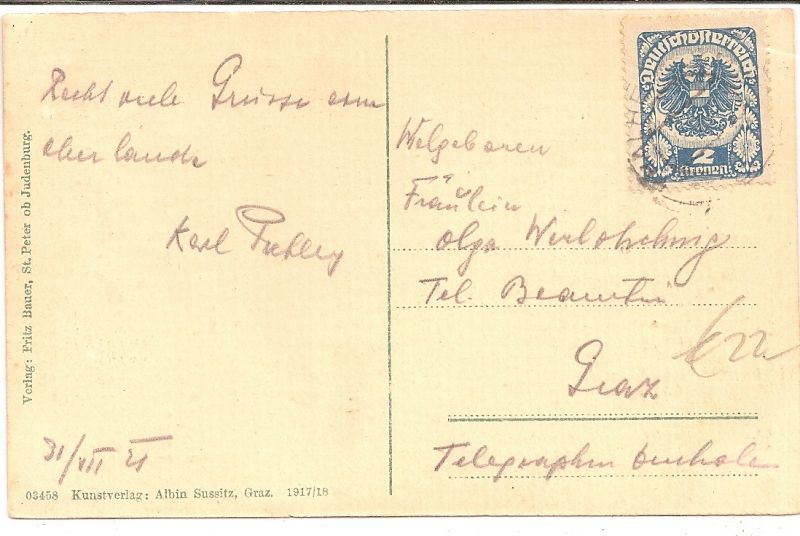 Recht viele Grüsse vom
Oberlande
Karl
31/VII 21
Verlag: Fritz Bauer, St. Peter ob Judenburg.
03458 Kunstverlag: Albin Sussitz, Graz. 1917/18
Deutschösterreich
2
Kronen
Welgeboren
Fräulein
Olga
Tel. Beamtin
Graz
Telegraphen